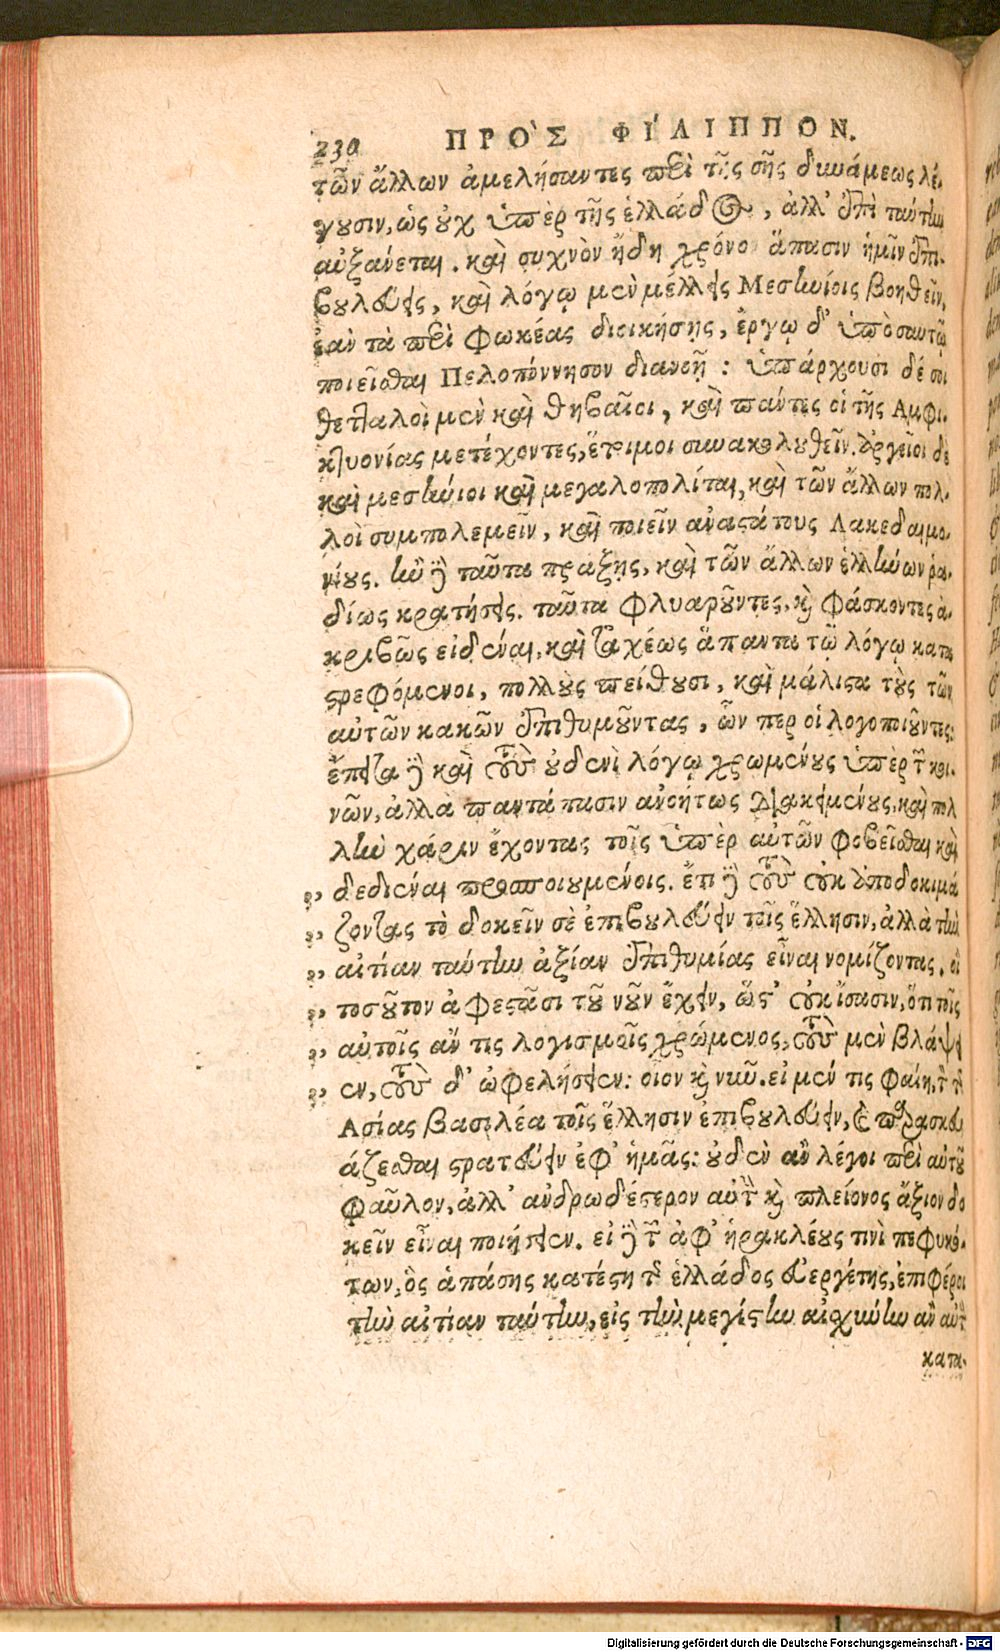 230 ΠΡΟ`Σ ΦΙ´ΛΙΠΠΟΝ.
τῶν ἄλλων ἀμελήσαντες περὶ τῆς σῆς δυνάμεως λέ-
γουσιν, ὡς οὐχ ὑπὲρ τῆς ἑλλάδος, ἀλλ' ἐπὶ ταύτην
αὐξάνεται. καὶ συχνὸν ἤδη χρόνον ἅπασιν ἡμῖν ἐπι-
βουλεύεις, καὶ λόγῳ μὲν μέλλεις Μεσηνίοις βοηθεῖν,
ἐὰν τὰ περὶ Φωκέας διοικήσῃς, ἔργῳ δ' ὑπὸ σαυτῷ
ποιεῖσθαι Πελοπόννησον διανοῇ: ὑπάρχουσι δέ σοι
θετταλοὶ μὲν καὶ θηβαῖοι, καὶ πάντες οἱ τῆς Αμφι-
κτυονίας μετέχοντες, ἕτοιμοι συνακολουθεῖν. ἀργεῖοι δὲ
καὶ μεσήνιοι καὶ μεγαλοπολίται, καὶ τῶν ἄλλων πολ-
λοὶ συμπολεμεῖν, καὶ ποιεῖν ἀναστάτους Λακεδαιμο-
νίους. ἢν δὲ ταῦτα πράξῃς, καὶ τῶν ἄλλων ἑλλήνων ῥα-
δίως κρατήσεις. ταῦτα φλυαροῦντες, καὶ φάσκοντες ἀ-
κριβῶς εἰδέναι, καὶ ταχέως ἅπαντα τῷ λόγῳ κατα
στρεφόμενοι, πολλοὺς πείθουσι, καὶ μάλιστα τοὺς τῶν
αὐτῶν κακῶν ἐπιθυμοῦντας, ὧν περ οἱ λογοποιοῦντες:
ἔπειτα δὲ καὶ τοὺς οὐδενὶ λόγῳ χρωμένους ὑπὲρ τῶν κοι-
νῶν, ἀλλὰ παντάπασιν ἀνοήτως διακειμένους, καὶ πολ
λὴν χάριν ἔχοντας τοῖς ὑπὲρ αὐτῶν φοβεῖσθαι καὶ
„ δεδιέναι προσποιουμένοις. ἔτι δὲ τοὺς οὐκ ἀποδοκιμά
„ ζοντας τὸ δοκεῖν σὲ ἐπιβουλεύειν τοῖς ἕλλησιν, ἀλλὰ τὴν
„ αἰτίαν ταύτην ἀξίαν ἐπιθυμίας εἶναι νομίζοντας. οἳ
„ τοσοῦτον ἀφεστᾶσι τοῦ νοῦν ἔχειν, ὥστ' οὐκ ἴσασιν, ὅτι τοῖς
„ αὐτοῖς ἄν τις λογισμοῖς χρώμενος, τοὺς μὲν βλάψει
„ εν, τοὺς δ' ὠφελήσειεν: οἷον καὶ νῦν. εἰ μέν τις φαίη, τὸν τῆς
Ασίας βασιλέα τοῖς ἕλλησιν ἐπιβουλεύειν, καὶ παρασκευ
άζεσθαι στρατεύειν ἐφ' ἡμᾶς: οὐδὲν ἂν λέγοι περὶ αὐτοῦ
φαῦλον, ἀλλ' ἀνδρωδέστερον αὐτὸν καὶ πλείονος ἄξιον δο
κεῖν εἶναι ποιήσειεν. εἰ δὲ τῶν ἀφ' ἡρακλέους τινὶ πεφυκό-
των, ὃς ἁπάσης κατέστη τῆς ἑλλάδος εὐεργέτης, ἐπιφέροι
τὴν αἰτίαν ταύτην, εἰς τὴν μεγίστην αἰσχύνην ἂν αὐτὸν
κατα-
Digitalisierung gefördert durch die Deutsche Forschungsgemeinschaft - DFG